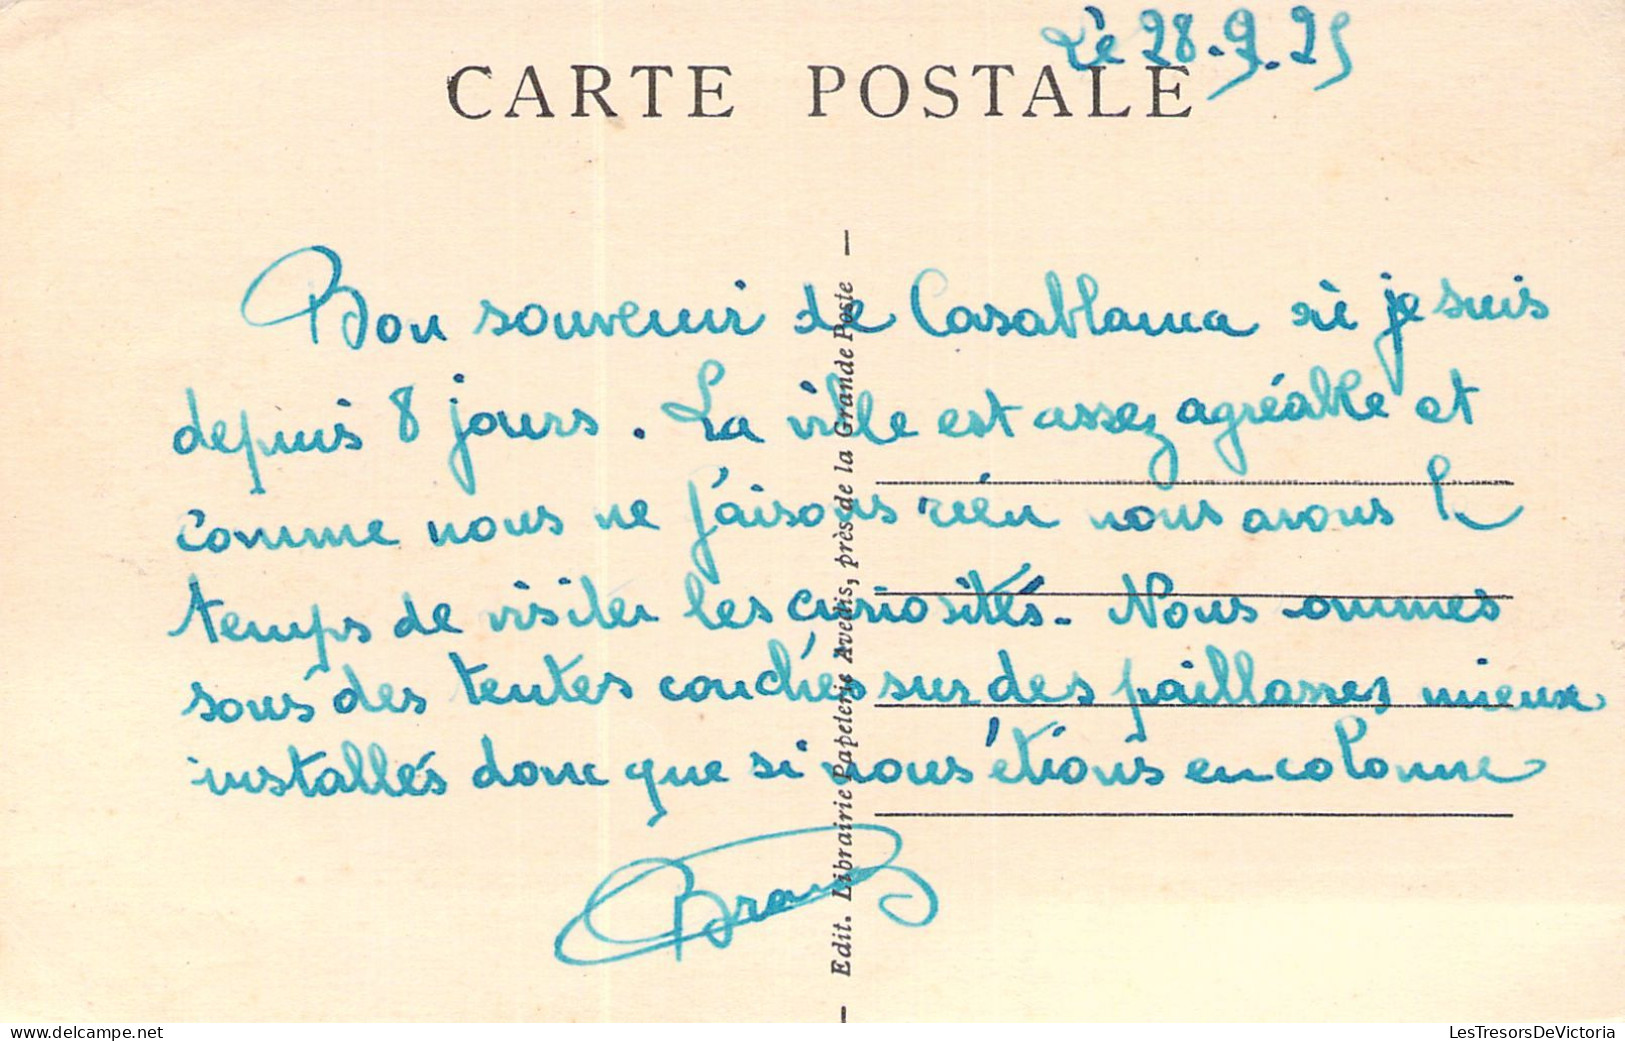 Le 28.9.25
CARTE POSTALE
Bon souvenir de Casablanca où je suis
depuis 8 jours. La ville est assez agréable et
comme nous ne faisons rien nous avons le
temps de visiter les curiosités. Nous sommes
sous des tentes couchés sur des paillasses mieux
installés donc que si nous étions en colonne
— Edit. Librairie Papeterie Avedis, près de la Grande Poste —
delcampe.net
LesTresorsDeVictoria